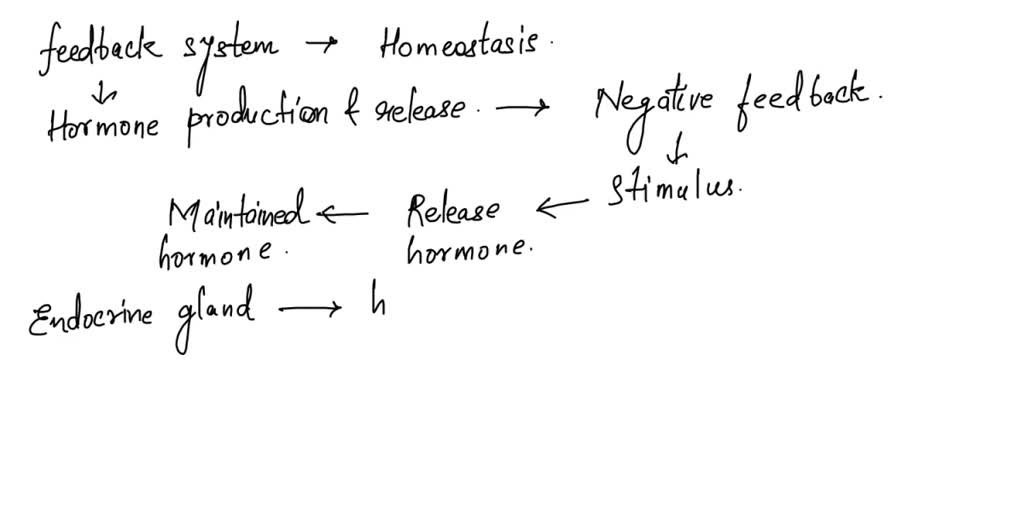 feedback system → Homeostasis.
↓
Hormone production & release. → Negative feedback.
↓
Maintained ← Release ← Stimulus.
hormone. hormone.
Endocrine gland → h